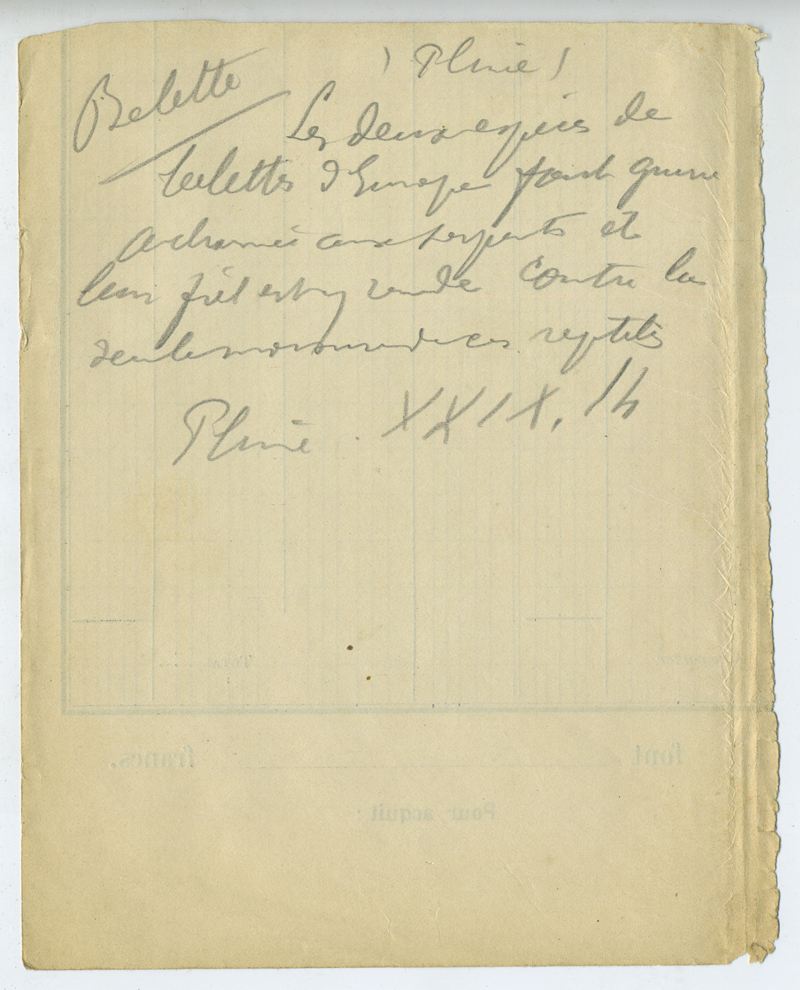 Belette
(Pline)
Les deux espèces de
belettes d'Europe font guerre
acharnée aux serpents et
leur fiel est remède contre la
morsure de ces reptiles
Pline. XXIX, 14
Total
font francs.
Pour acquit :